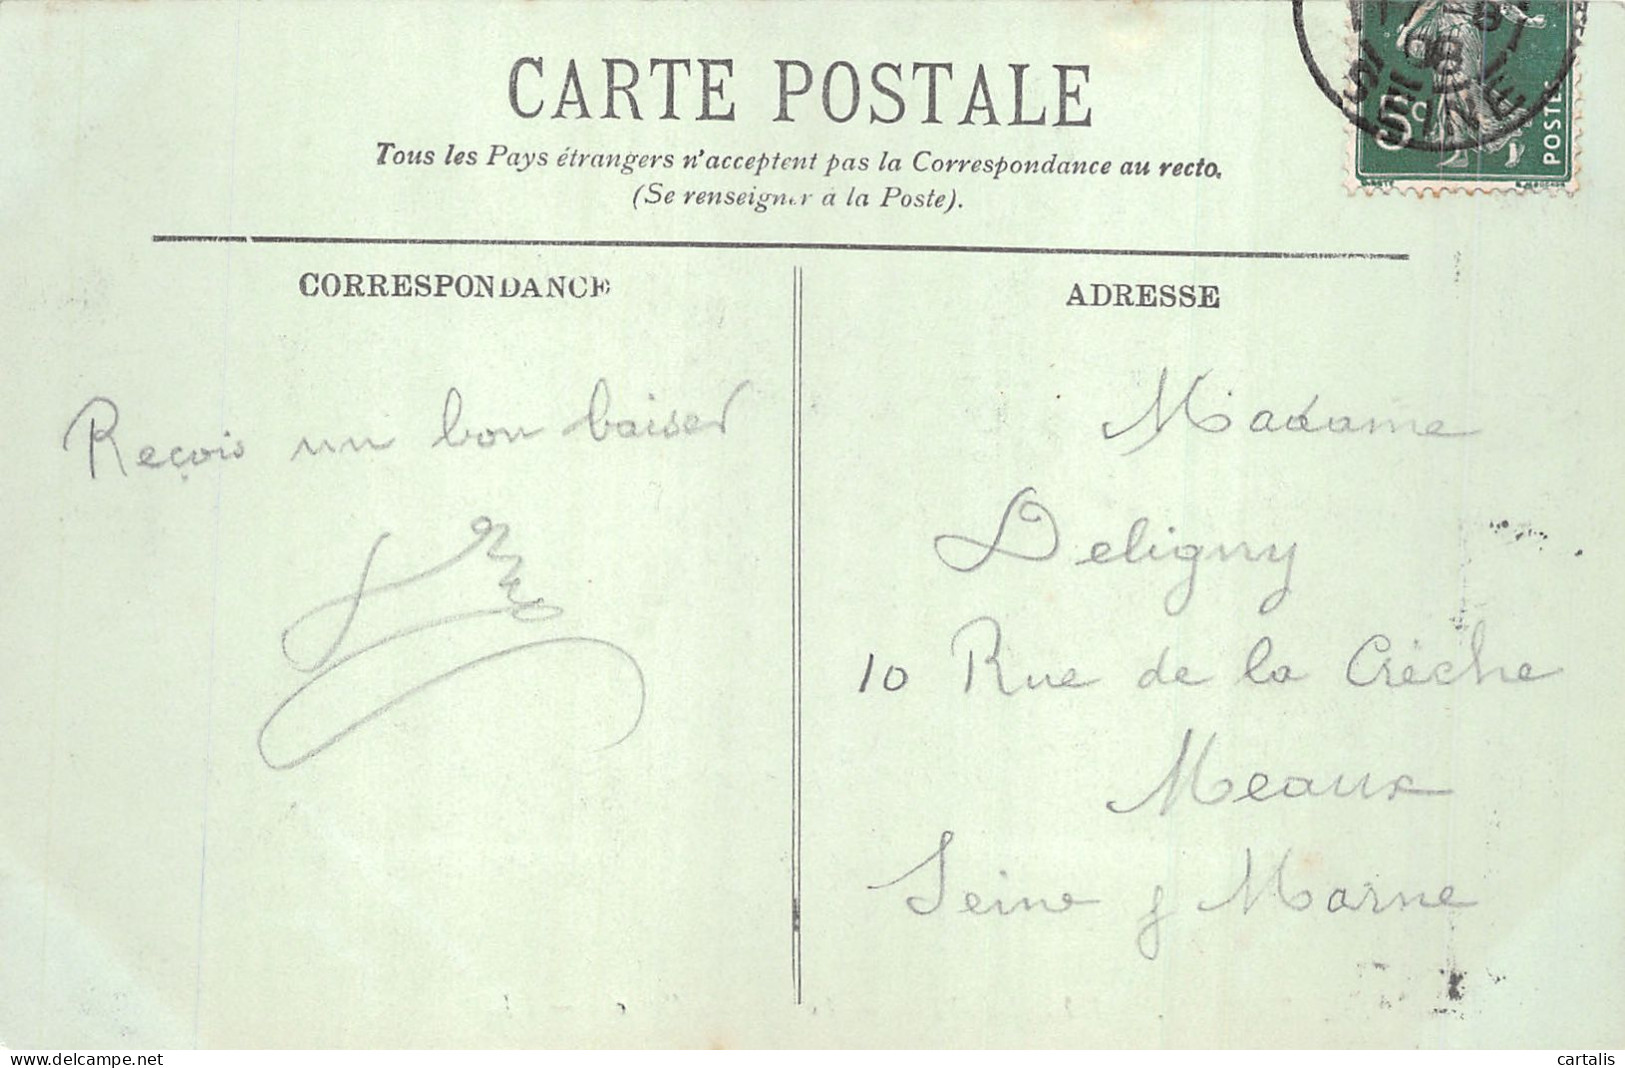 CARTE POSTALE
Tous les Pays étrangers n'acceptent pas la Correspondance au recto.
(Se renseigner à la Poste).
CORRESPONDANCE
Reçois un bon baiser
ADRESSE
Madame
Deligny
10 Rue de la Crèche
Meaux
Seine & Marne
5c
POSTES
delcampe.net
cartalis